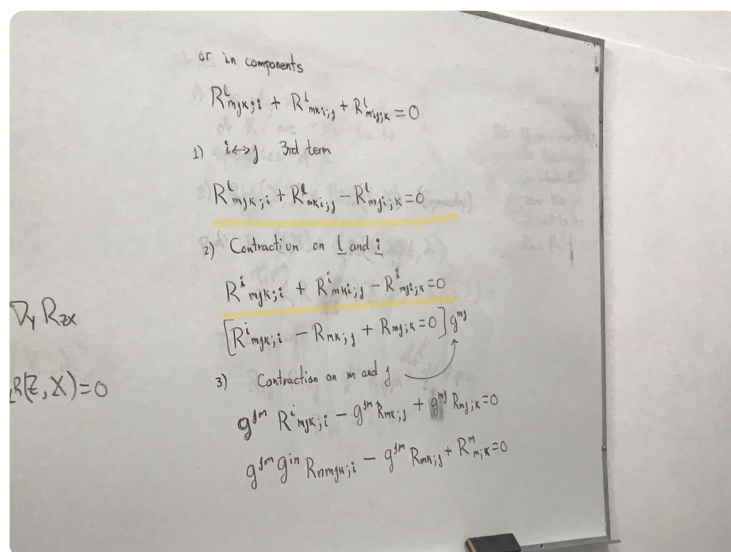 or in components
R^l_{mjk;i} + R^l_{mki;j} + R^l_{mij;k} = 0
1) i↔j 3rd term
R^l_{mjk;i} + R^l_{mki;j} - R^l_{mji;k} = 0
2) Contraction on l and i
R^i_{mjk;i} + R^i_{mki;j} - R^i_{mji;k} = 0
[R^i_{mjk;i} - R_{mk;j} + R_{mj;k} = 0] g^{mj}
3) Contraction on m and j
g^{jm} R^i_{mjk;i} - g^{jm} R_{mk;j} + g^{mj} R_{mj;k} = 0
g^{jm} g^{in} R_{nmjk;i} - g^{jm} R_{mk;j} + R^m_{m;k} = 0
∇_Y R_{ZX}
R(Z, X) = 0